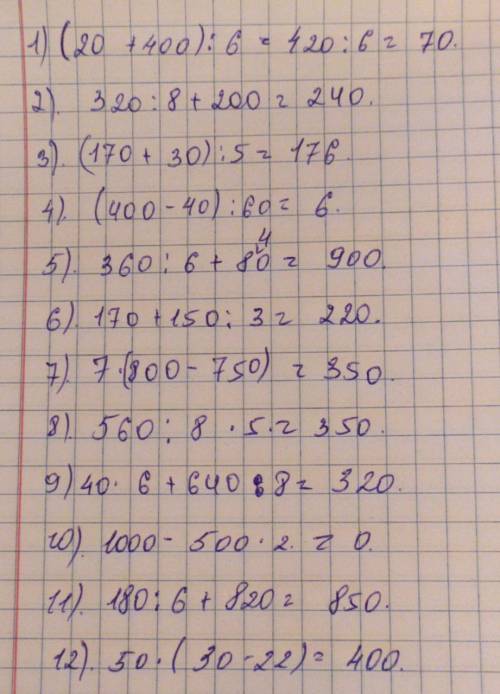 1) (20 + 400) : 6 = 420 : 6 = 70.
2). 320 : 8 + 200 = 240.
3). (170 + 30) : 5 = 176.
4). (400 - 40) : 60 = 6.
5). 360 : 6 + 840 = 900.
6). 170 + 150 : 3 = 220.
7). 7 · (800 - 750) = 350.
8). 560 : 8 · 5 · = 350.
9) 40 · 6 + 640 : 8 = 320.
10). 1000 - 500 · 2. = 0.
11). 180 : 6 + 820 = 850.
12). 50 · (30 - 22) = 400.